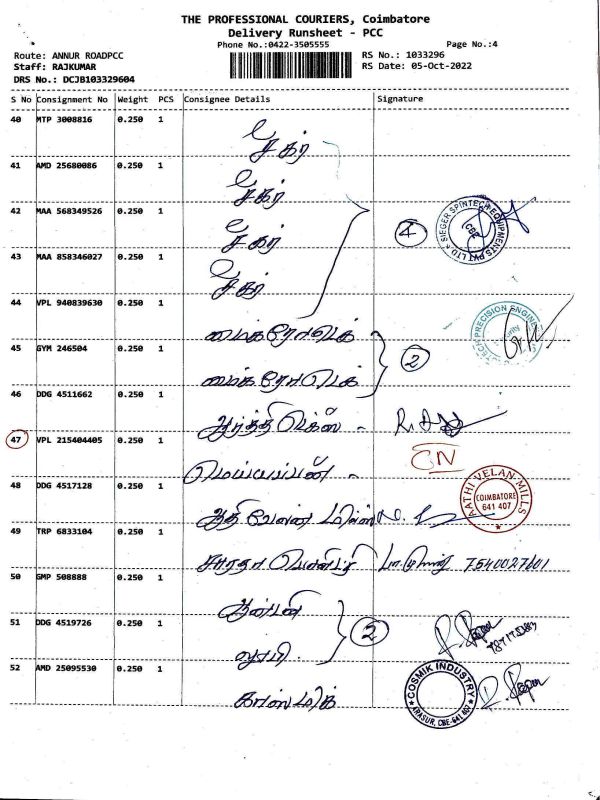 THE PROFESSIONAL COURIERS, Coimbatore
Delivery Runsheet - PCC
Phone No.:0422-3505555
Page No.:4
Route: ANNUR ROADPCC
RS No.: 1033296
Staff: RAJKUMAR
RS Date: 05-Oct-2022
DRS No.: DCJB103329604
S No Consignment No Weight PCS Consignee Details Signature
40 MTP 3008816 0.250 1
41 AMD 25680086 0.250 1
42 MAA 568349526 0.250 1
4
SIEGER SPINTECH EQUIPMENTS PVT LTD
CBE
43 MAA 858346027 0.250 1
44 VPL 940839630 0.250 1
மைக்ரோடெக்
45 GYM 246504 0.250 1
2
மைக்ரோடெக்
46 DDG 4511662 0.250 1
47 VPL 215404405 0.250 1
CN
48 DDG 4517128 0.250 1
AATHI VELAN MILLS
COIMBATORE
641 407
ஆதி வேலன் மில்ஸ்
49 TRP 6833104 0.250 1
7540027601
50 GMP 508888 0.250 1
51 DDG 4519726 0.250 1
2
52 AMD 25095530 0.250 1
காஸ்மிக்
COSMIK INDUSTRY
ARASUR, CBE-641 407